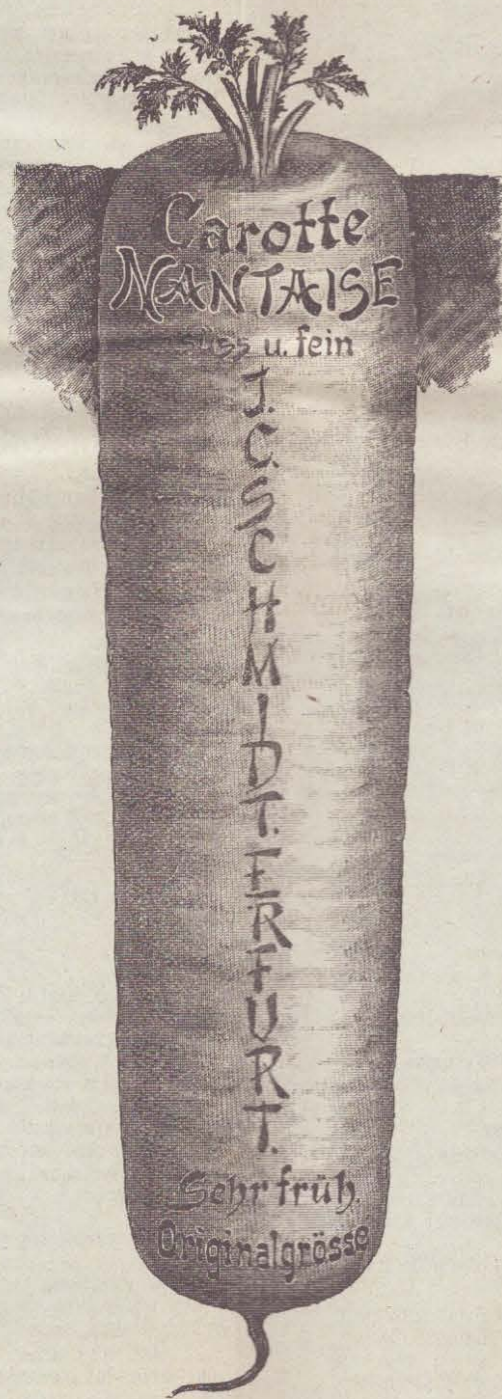 Carotte
NANTAISE
süss u. fein
J. C. SCHMIDT. ERFURT.
Sehr früh.
Originalgrösse